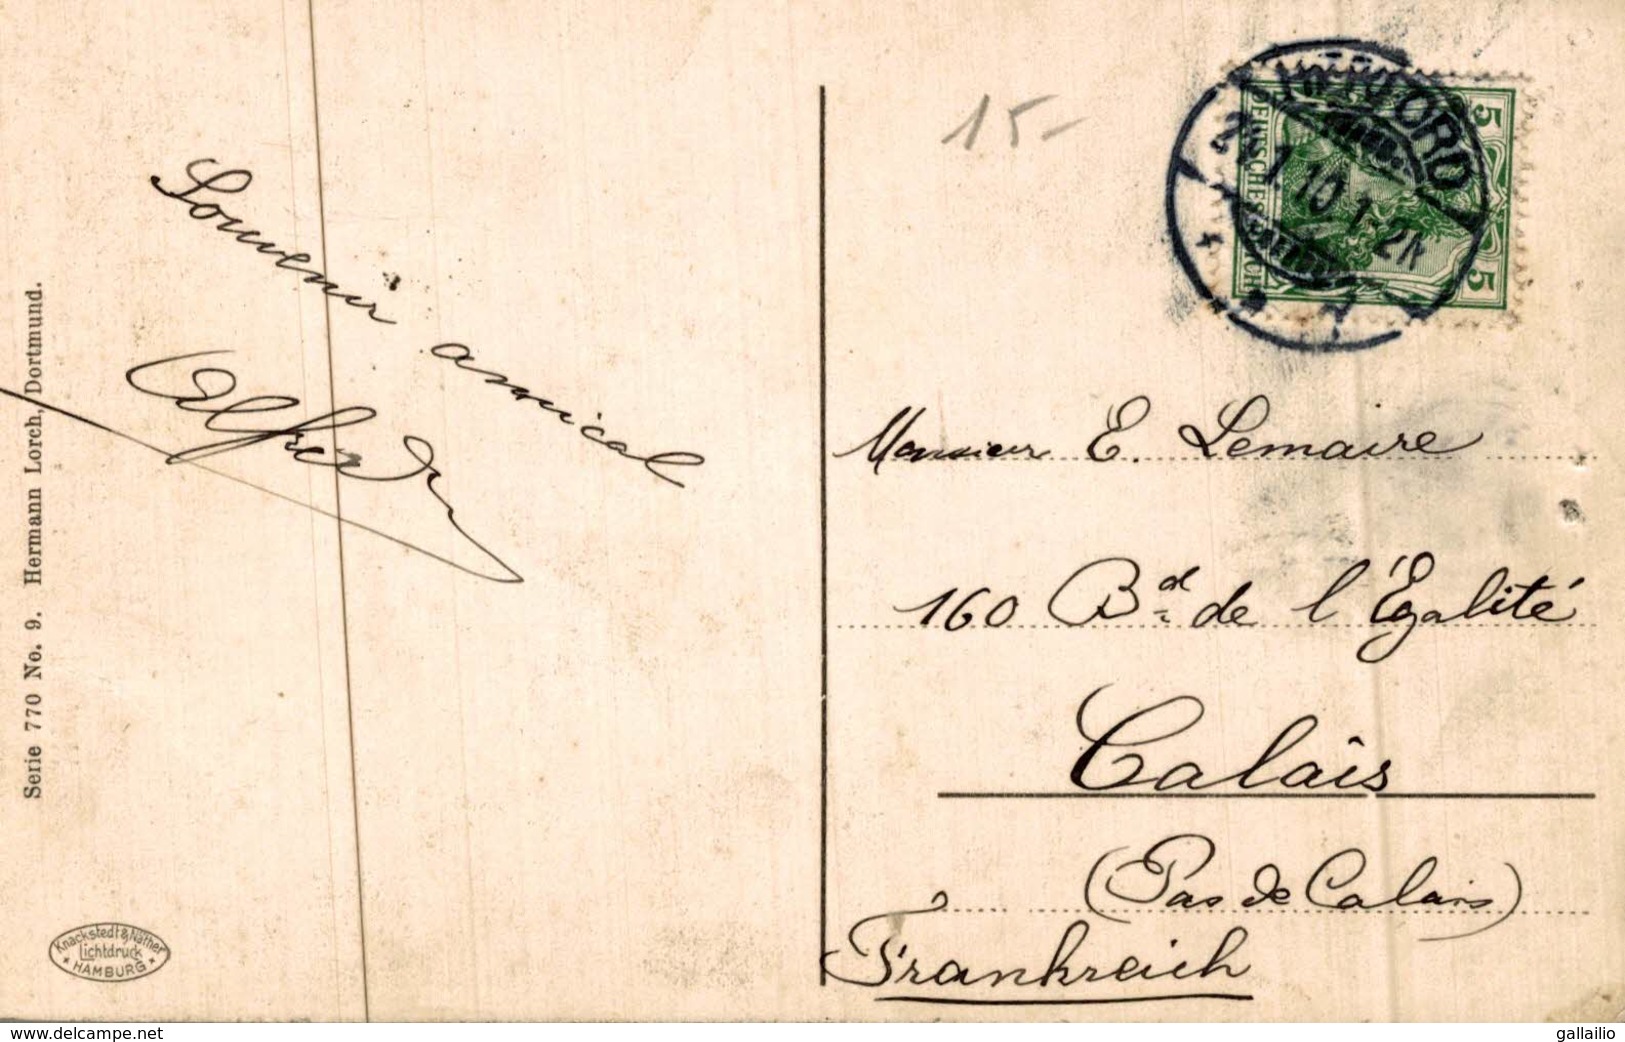 15-
HERFORD
24.1.10.1-2N
* 1
DEUTSCHES REICH
5
5
Souvenir amical
Alfred
Monsieur E. Lemaire
160 Bd de l'Égalité
Calais
(Pas de Calais)
Frankreich
Serie 770 No. 9. Hermann Lorch, Dortmund.
Knackstedt & Näther
Lichtdruck
* HAMBURG *
www.delcampe.net
gallailio